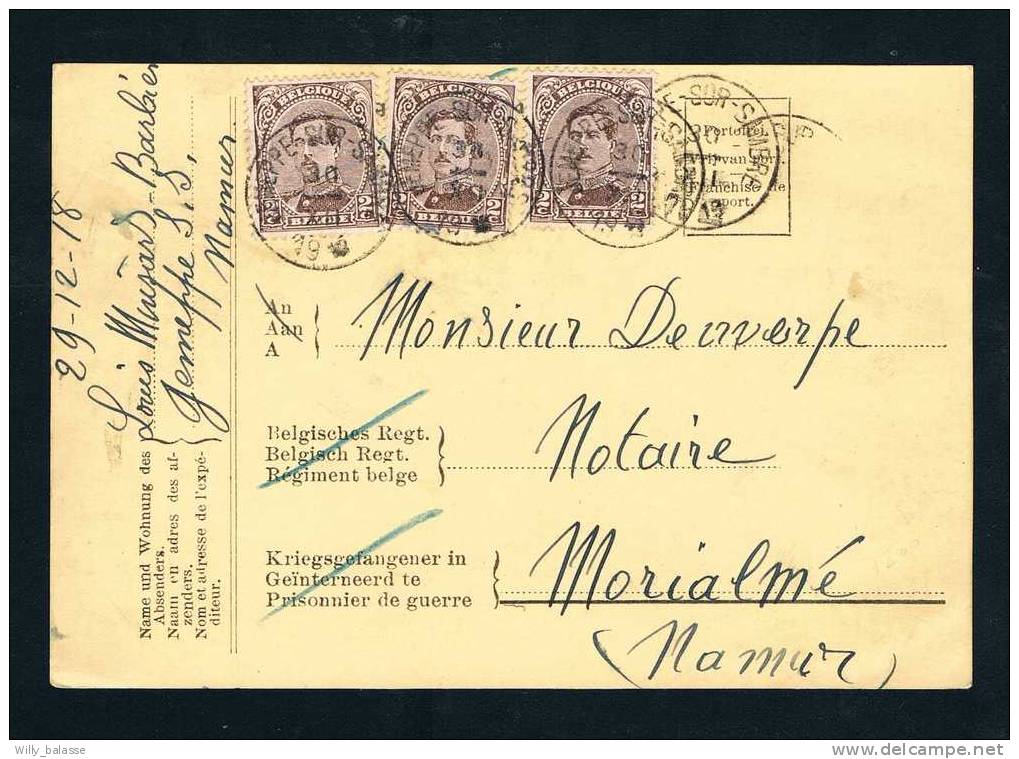 29-12-18
Louis Musard-Barbier
Jemeppe s. S.
Namur
Name und Wohnung des
Absenders.
Naam en adres des af-
zenders.
Nom et adresse de l'expé-
diteur.
BELGIQUE BELGIQUE BELGIQUE
2 BELGIË 2 2 BELGIË 2 2 BELGIË 2
Portofrei.
Vrij van port.
Franchise de
port.
An
Aan
A
Monsieur Denverpe
Belgisches Regt.
Belgisch Regt.
Régiment belge
Notaire
Kriegsgefangener in
Geïnterneerd te
Prisonnier de guerre
Morialmé
(Namur)
Willy_balasse
www.delcampe.net